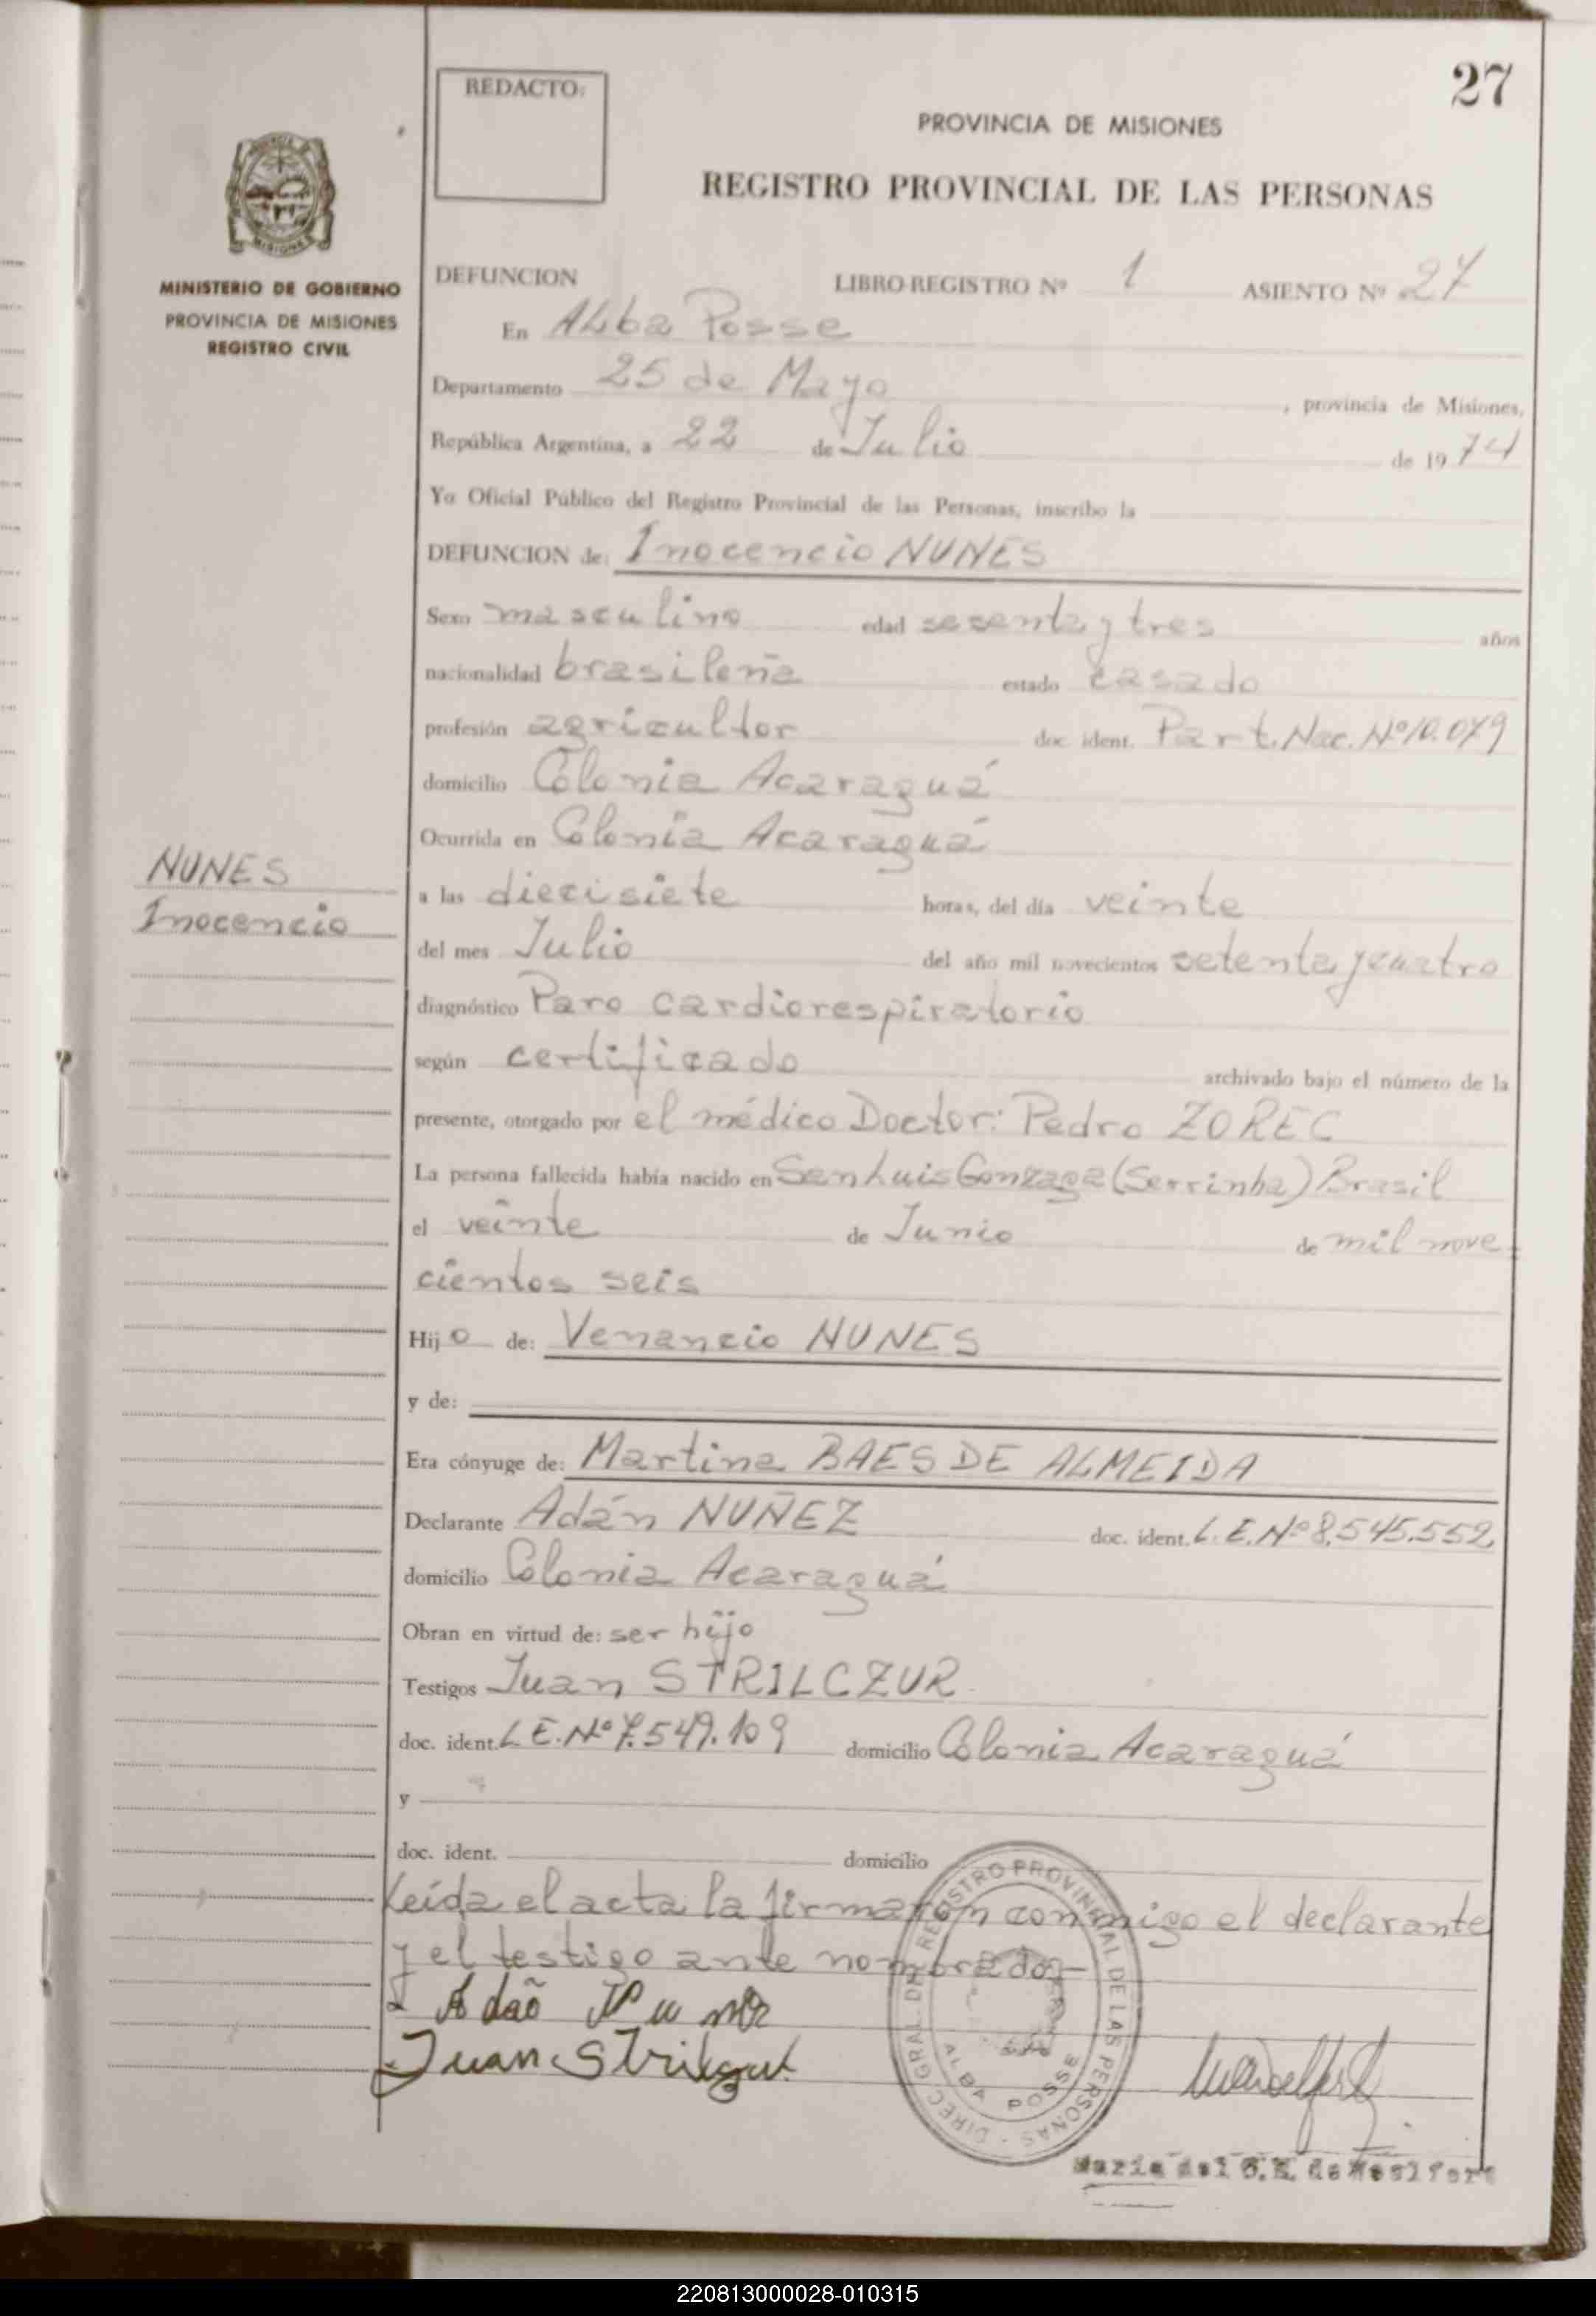 27
REDACTO:
PROVINCIA DE MISIONES
REGISTRO PROVINCIAL DE LAS PERSONAS
MISIONES
MINISTERIO DE GOBIERNO
PROVINCIA DE MISIONES
REGISTRO CIVIL
DEFUNCION LIBRO-REGISTRO Nº 1 ASIENTO Nº 27
En Alba Posse
Departamento 25 de Mayo, provincia de Misiones,
República Argentina, a 22 de Julio de 1974
Yo Oficial Público del Registro Provincial de las Personas, inscribo la
DEFUNCION de: Inocencio NUNES
Sexo masculino edad sesenta y tres años
nacionalidad brasileña estado casado
profesión agricultor doc. ident. Part. Nac. Nº 10.079
domicilio Colonia Acaraguá
Ocurrida en Colonia Acaraguá
NUNES
Inocencio
a las diecisiete horas, del día veinte
del mes Julio del año mil novecientos setenta y cuatro
diagnóstico Paro cardiorespiratorio
según certificado archivado bajo el número de la
presente, otorgado por el médico Doctor: Pedro ZOREC
La persona fallecida había nacido en San Luis Gonzaga (Serrinha) Brasil
el veinte de Junio de mil nove-
cientos seis
Hijo de: Venancio NUNES
y de:
Era cónyuge de: Martina BAES DE ALMEIDA
Declarante Adán NUÑEZ doc. ident. L.E. Nº 8.545.552
domicilio Colonia Acaraguá
Obran en virtud de: ser hijo
Testigos Juan STRILCZUR
doc. ident. L.E. Nº 7.549.109 domicilio Colonia Acaraguá
y
doc. ident. domicilio
Leída el acta la firmaron conmigo el declarante
y el testigo ante nombrados-
Adaõ
Juan
DIREC. GRAL. DEL REGISTRO PROVINCIAL DE LAS PERSONAS
ALBA POSSE
María del de
220813000028-010315